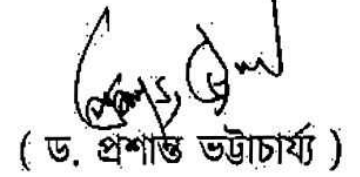 ( ড. প্রশান্ত ভট্টাচার্য্য )